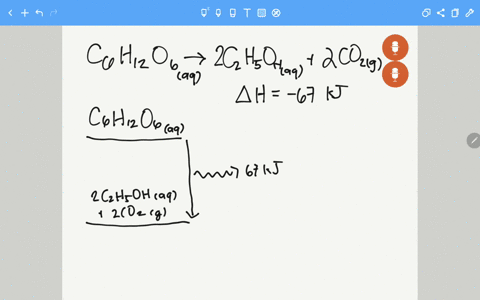 C6H12O6(aq) → 2C2H5OH(aq) + 2CO2(g)
ΔH = -67 kJ
C6H12O6(aq)
67 kJ
2C2H5OH(aq)
+ 2CO2(g)